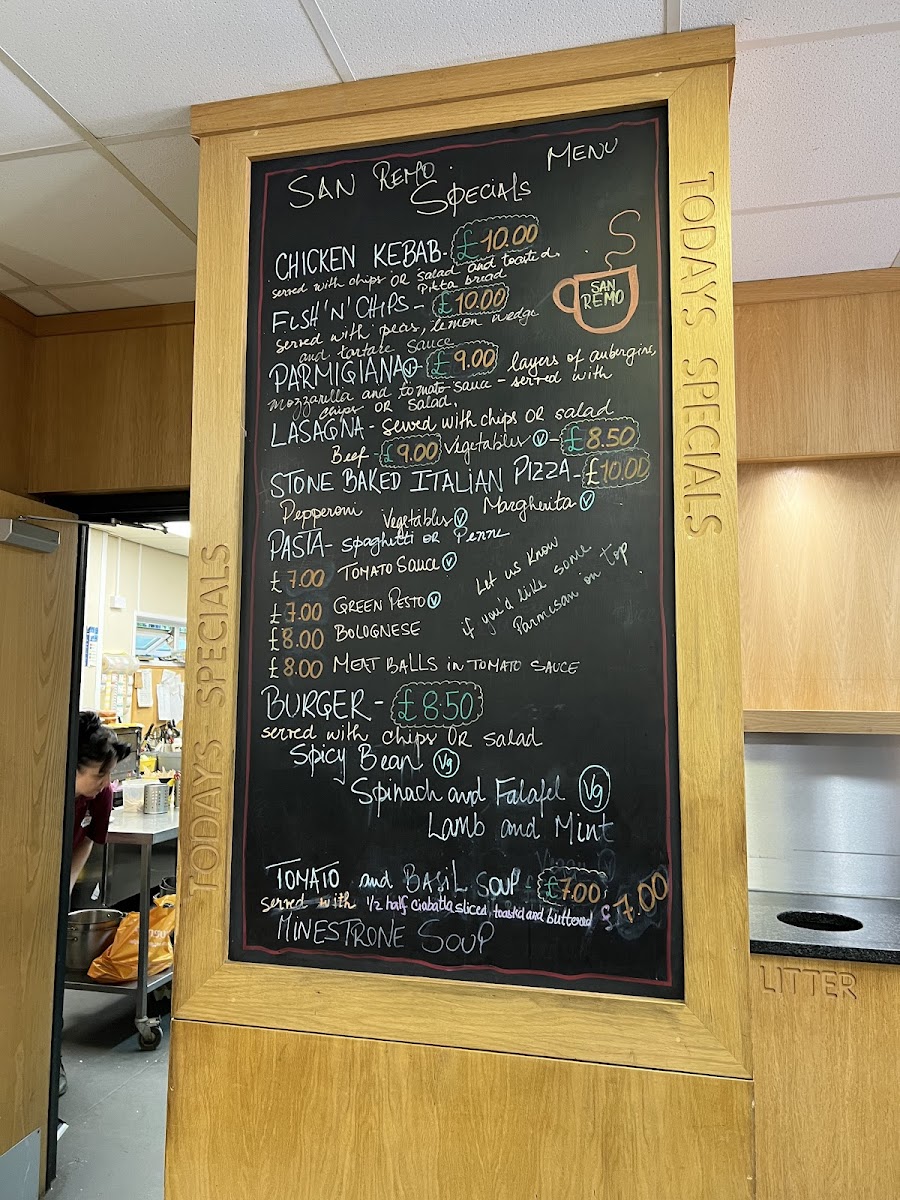 SAN REMO MENU
SPECIALS
CHICKEN KEBAB - £10.00
served with chips OR salad and toasted
pitta bread
FISH 'N' CHIPS - £10.00
served with peas, lemon wedge
and tartare sauce
PARMIGIANA V - £9.00 layers of aubergine,
mozzarella and tomato sauce - served with
chips OR salad.
LASAGNA - served with chips OR salad
Beef - £9.00 Vegetables V - £8.50
STONE BAKED ITALIAN PIZZA - £10.00
Pepperoni Vegetables V Margherita V
PASTA - spaghetti OR Penne
£7.00 TOMATO SAUCE V
£7.00 GREEN PESTO V
£8.00 BOLOGNESE
£8.00 MEAT BALLS in TOMATO SAUCE
Let us know
if you'd like some
Parmesan on top
BURGER - £8.50
served with chips OR salad
Spicy Bean Vg
Spinach and Falafel Vg
Lamb and Mint
TOMATO and BASIL SOUP - £7.00
served with 1/2 half Ciabatta sliced, toasted and buttered £7.00
MINESTRONE SOUP
SAN
REMO
TODAYS SPECIALS
TODAYS SPECIALS
LITTER